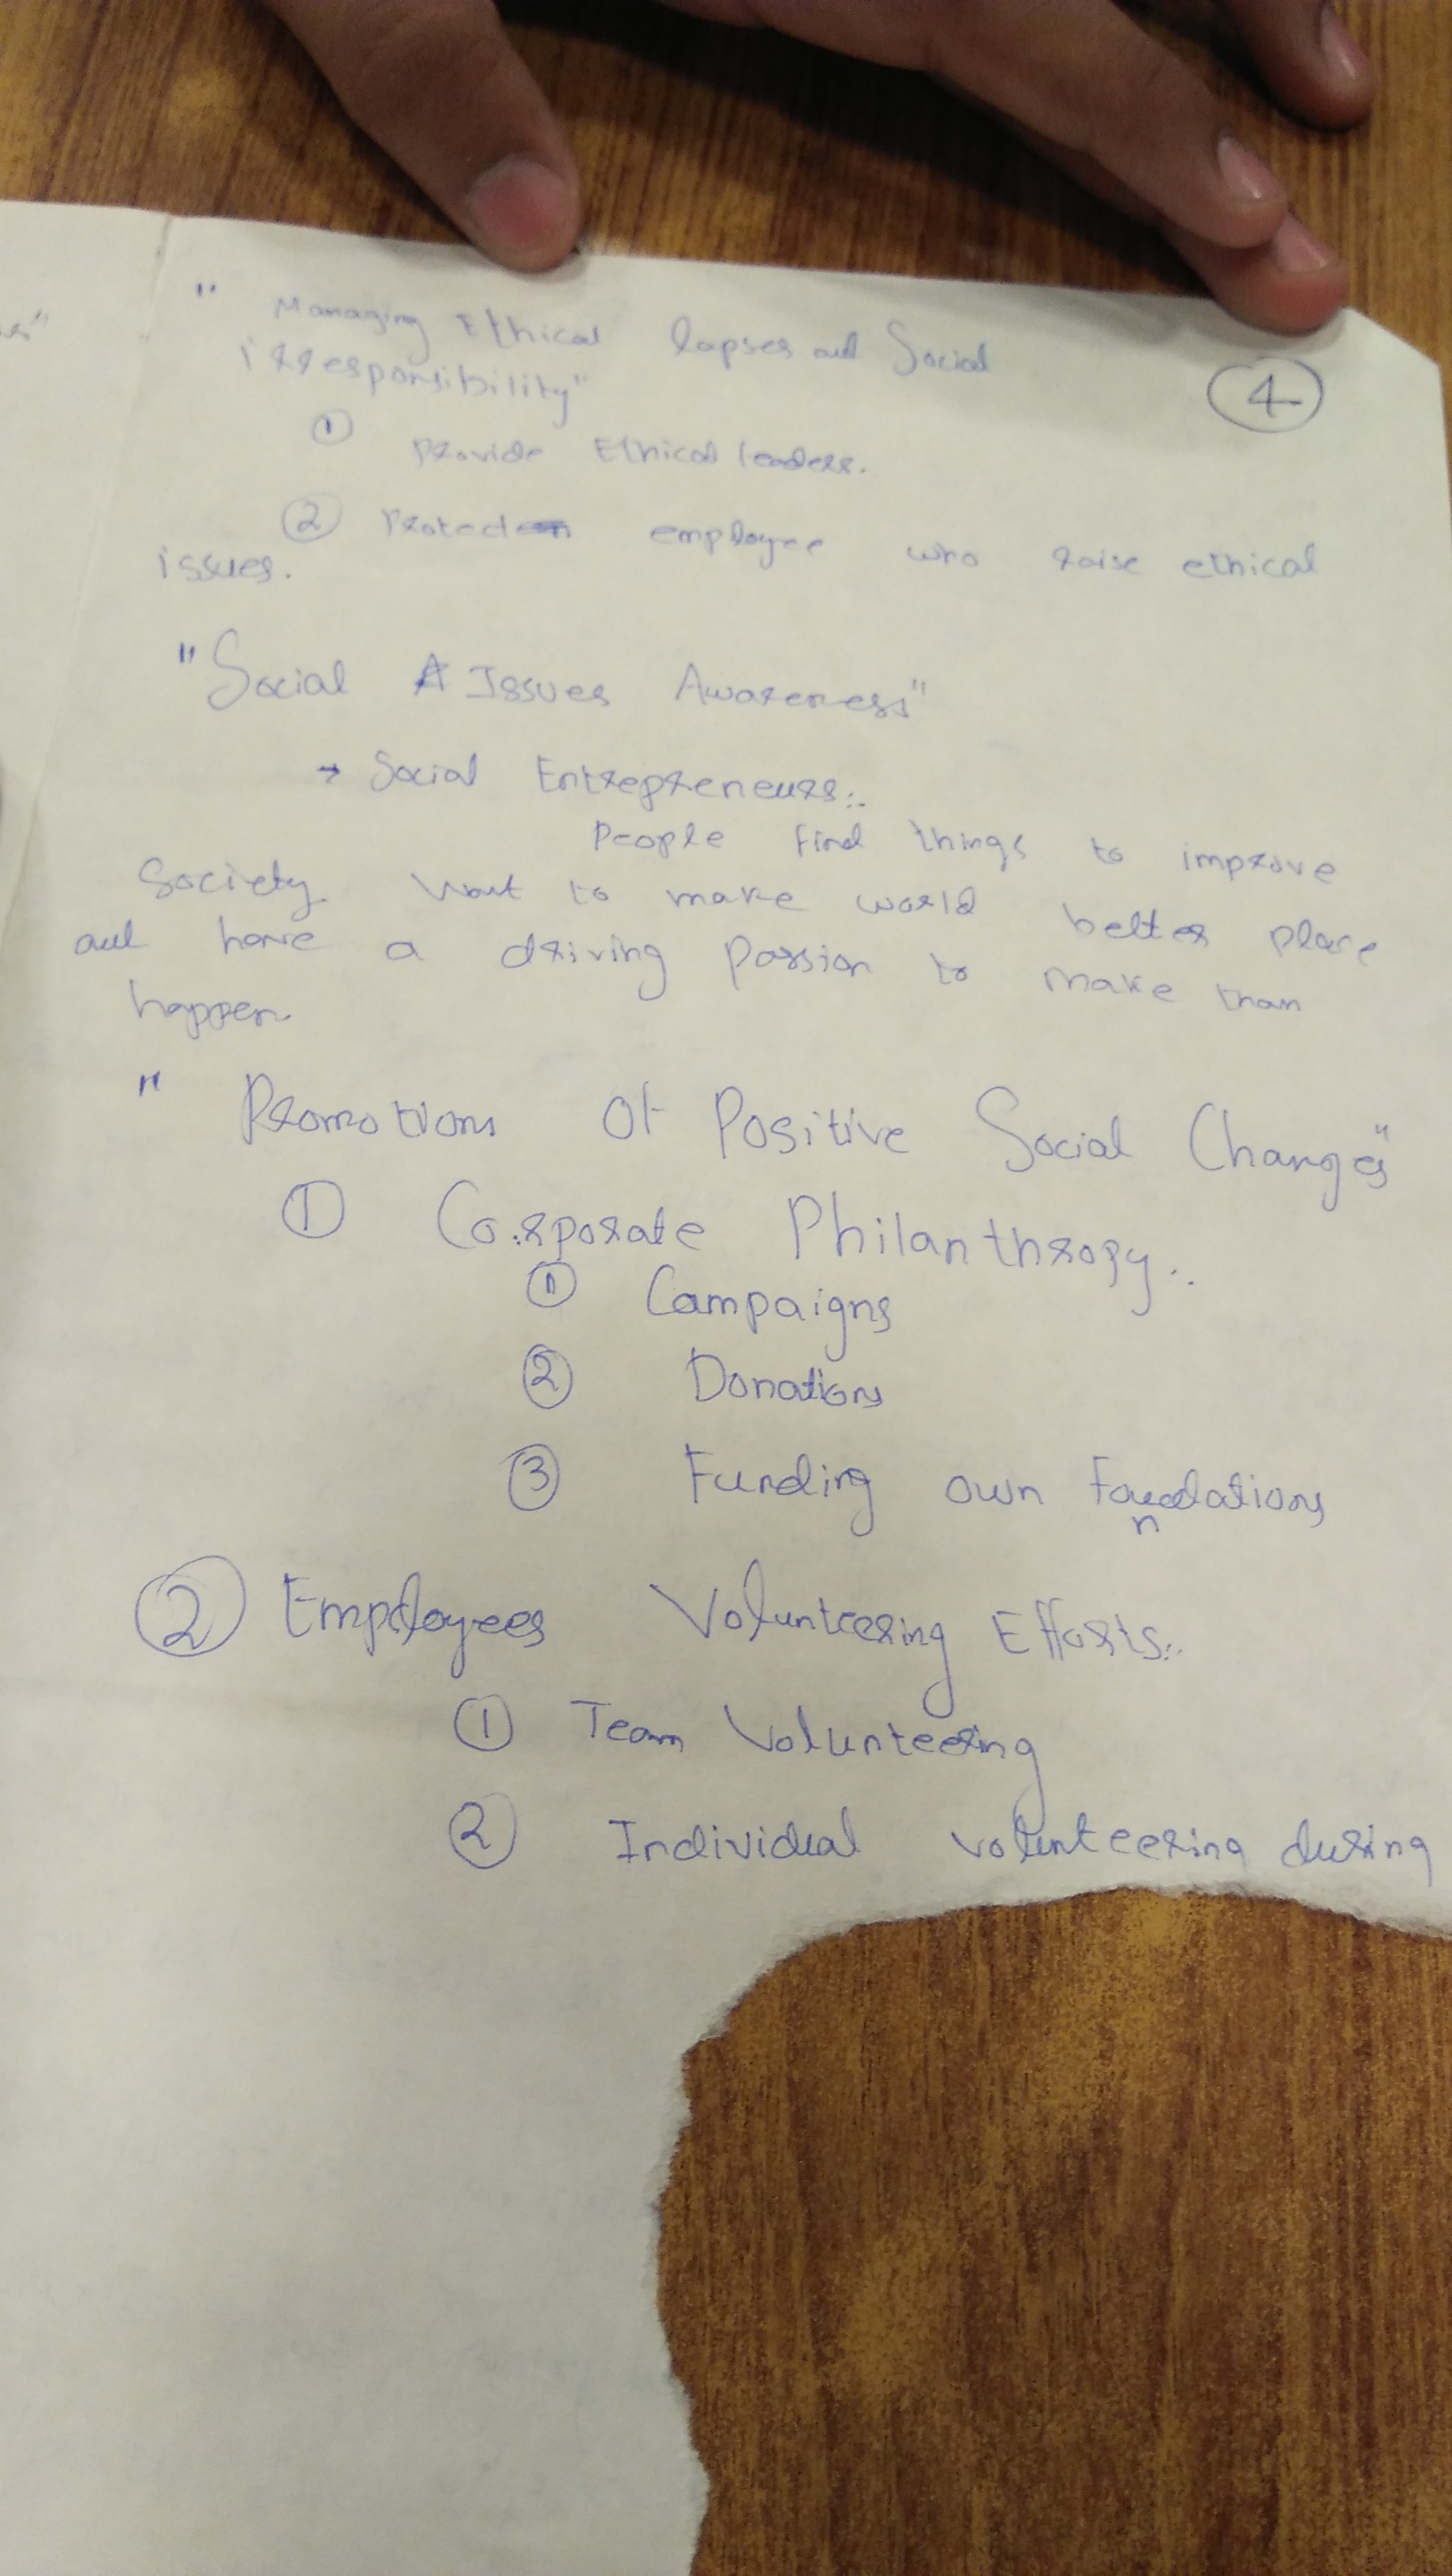 " Managing Ethical lapses and Social
irresponsibility"
4
① Provide Ethical leaders.
② Protect employee who raise ethical
issues.
"Social Issues Awareness"
→ Social Entrepreneurs:.
People find things to improve
Society want to make world better place
and have a driving passion to make than
happen.
" Promotions Of Positive Social Changes"
① Corporate Philanthropy:.
① Campaigns
② Donations
③ Funding own Foundations
② Employees Volunteering Efforts:.
① Team Volunteering
② Individual volunteering during